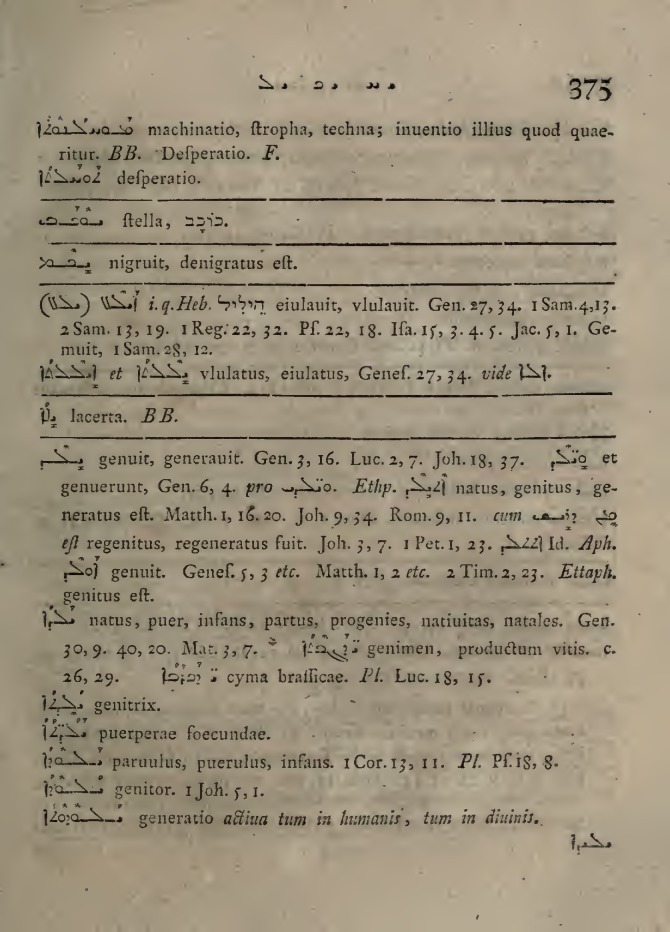 ܝܚ ܝܟ ܝܠ 375
machinatio, ſtropha, techna; inuentio illius quod quae-
ritur. BB. Deſperatio. F.
deſperatio.
ſtella, כוֹכָב.
nigruit, denigratus eſt.
i. q. Heb. הֵילִיל eiulauit, vlulauit. Gen. 27, 34. 1 Sam. 4, 13.
2 Sam. 13, 19. 1 Reg. 22, 32. Pſ. 22, 18. Iſa. 15, 3. 4. 5. Jac. 5, 1. Ge-
muit, 1 Sam. 28, 12.
et vlulatus, eiulatus, Geneſ. 27, 34. vide
lacerta. BB.
ܝܠܕ genuit, generauit. Gen. 3, 16. Luc. 2, 7. Joh. 18, 37. et
genuerunt, Gen. 6, 4. pro Ethp. natus, genitus, ge-
neratus eſt. Matth. 1, 16. 20. Joh. 9, 34. Rom. 9, 11. cum
eſt regenitus, regeneratus fuit. Joh. 3, 7. 1 Pet. 1, 23. Id. Aph.
ܐܘܠܕ genuit. Geneſ. 5, 3 etc. Matth. 1, 2 etc. 2 Tim. 2, 23. Ettaph.
genitus eſt.
ܝܠܕܐ natus, puer, infans, partus, progenies, natiuitas, natales. Gen.
30, 9. 40, 20. Mat. 3, 7. genimen, productum vitis. c.
26, 29. cyma braſſicae. Pl. Luc. 18, 15.
ܝܠܕܬܐ genitrix.
ܝܠܕܬܐ puerperae foecundae.
ܝܠܘܕܐ paruulus, puerulus, infans. 1 Cor. 13, 11. Pl. Pſ. 18, 8.
ܝܠܘܕܐ genitor. 1 Joh. 5, 1.
ܝܠܘܕܘܬܐ generatio actiua tum in humanis, tum in diuinis.